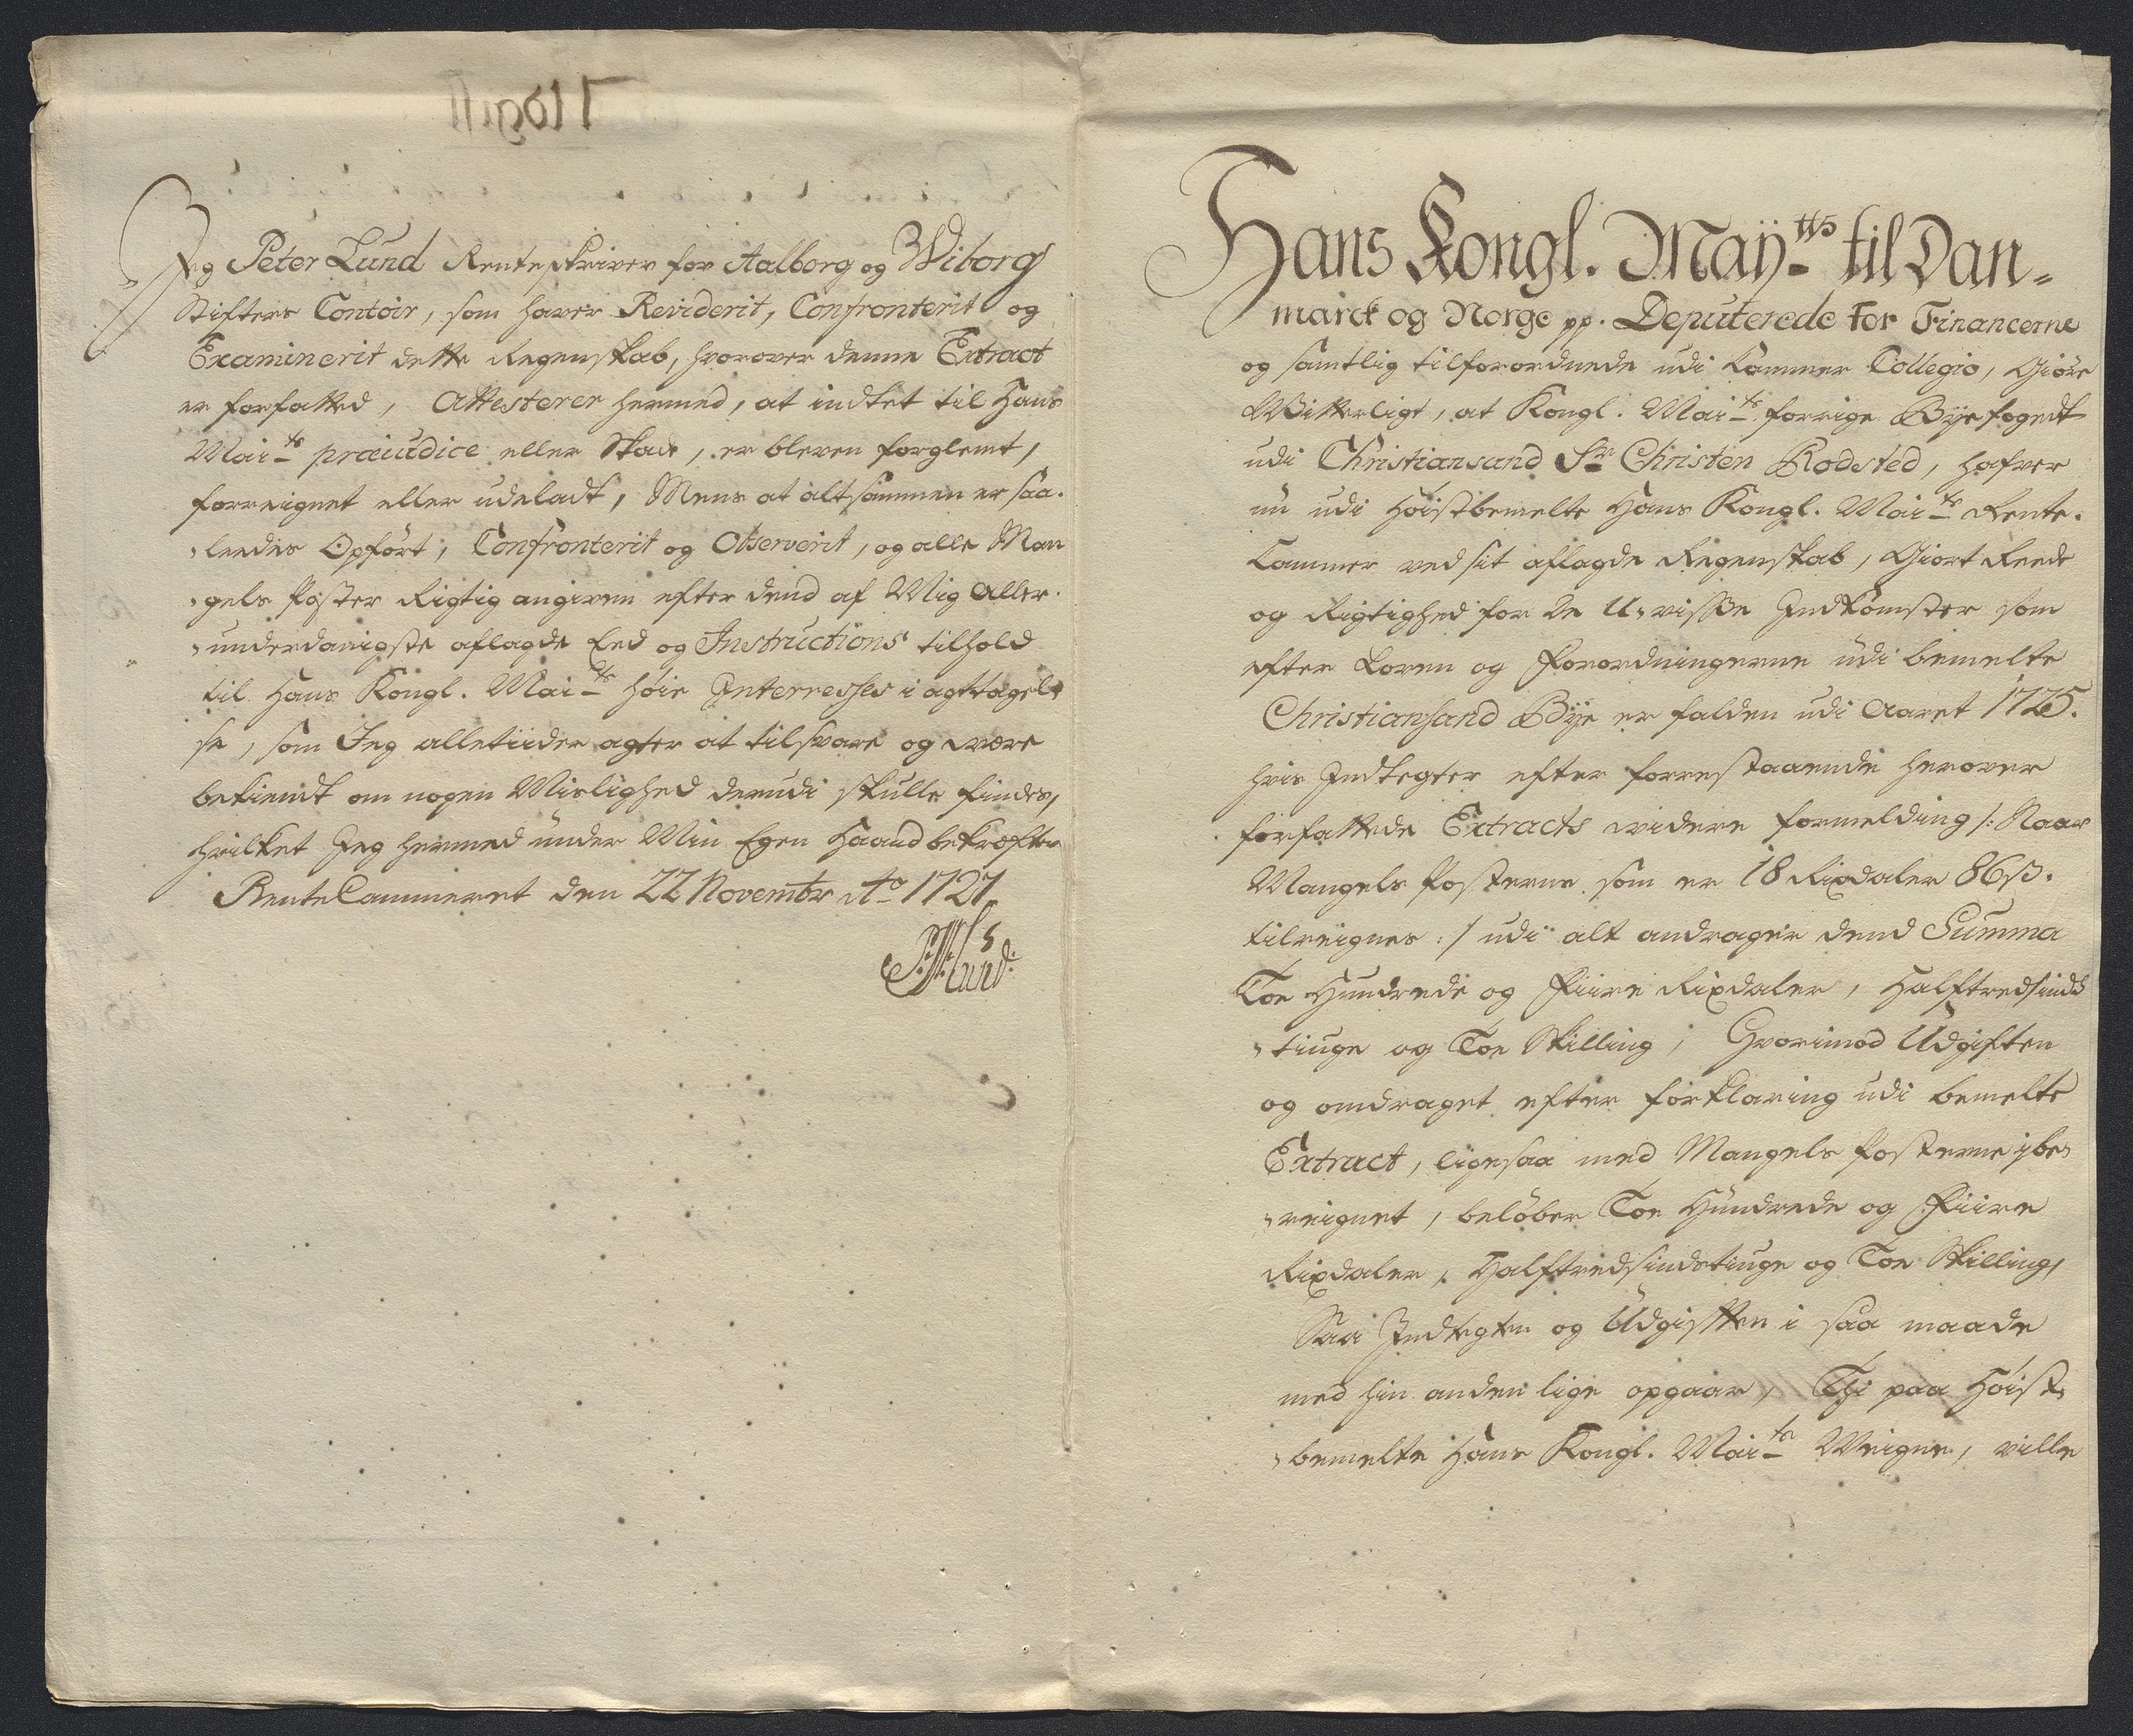 Jeg Peter Lund Renteskriver for Aalborg og Wiborg
Stifters Contoir, som haver Reviderit, Confronterit og
Examinerit dette Regenskab, hvorover denne Extract
er forfatted, Attesterer hermed, at indtet til Hans
Mai.ts præiudice eller Skade, er bleven forglemt,
forreignet eller udeladt, Mens at alt sammen er saa-
leedes Opført, Confronterit og Observerit, og alle Man
gels Poster Rigtig angiven efter dend af Mig Aller-
underdanigste aflagde Eed og Instructions tilhold
til Hans Kongl. Mai.ts høie Interresses i agttagel-
se, som Jeg alletiider agter at tilsvare og være
bekiendt om nogen Mislighed derudi skulle findes,
hvilket Jeg hermed under Min Egen Haand bekræfter
RenteCammeret den 22 Novembr Ao 1727.
Lund.
Hans Kongl. Maÿ.tts til Dan-
marck og Norge pp. Deputerede for Financerne
og samtlig tilforordnede udi Cammer Collegio, Giøre
Witterligt, at Kongl. Mai.ts forrige Bÿefogedt
udi Christiansand Sr Christen Rodsted, hafver
nu udi Høistbemelte Hans Kongl. Mai.ts Rente-
Cammer ved sit aflagde Regenskab, Giort Reede
og Rigtighed for De U-visse Indkomster som
efter Loven og Forordningerne udi bemelte
Christiansand Bÿe er falden udi Aaret 1725.
hvis Indtegter efter forrestaaende herover
forfattede Extracts videre formelding /: Naar
Mangels Posterne som er 18 Rixdaler 86 ß.
tilreignes :/ udi alt andrager dend Summa
Toe Hundrede og Fiire Rixdaler, Halftredsinds
tiuge og Toe Skilling, Hvorimod Udgiften
og omdraget efter forklaring udi bemelte
Extract, ligesaa med Mangels Posterne ibe-
reignet, beløber Toe Hundrede og Fiire
Rixdaler, Halftredsindstiuge og Toe Skilling,
Saa Indtegten og Udgiften i saa maade
med hin anden lige opgaar, Thi paa Høist-
bemelte Hans Kongl. Mai.ts Weigne, ville